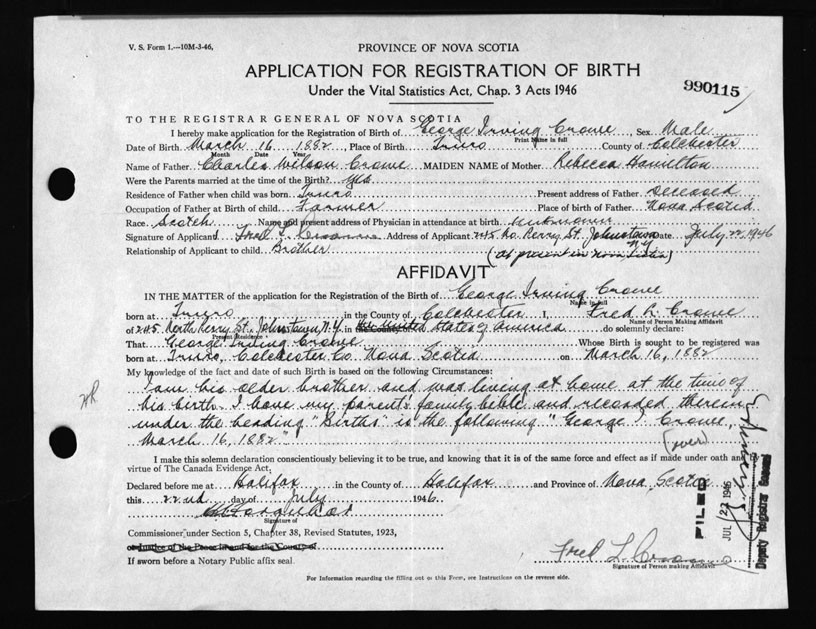 V. S. Form 1.—10M-3-46,
PROVINCE OF NOVA SCOTIA
APPLICATION FOR REGISTRATION OF BIRTH
990115
Under the Vital Statistics Act, Chap. 3 Acts 1946
TO THE REGISTRAR GENERAL OF NOVA SCOTIA
I hereby make application for the Registration of Birth of George Irving Crowe, Sex Male
Print Name in full
Date of Birth March 16 1882, Place of Birth Truro County of Colchester
Month Date Year
Name of Father Charles Wilson Crowe MAIDEN NAME of Mother Rebecca Hamilton
Were the Parents married at the time of the Birth? yes
Residence of Father when child was born Truro Present address of Father Deceased
Occupation of Father at Birth of child Farmer Place of birth of Father Nova Scotia
Race Scotch Name and present address of Physician in attendance at birth unknown
Signature of Applicant Fred L. Crowe Address of Applicant 245 No. Perry St. Johnstown N.Y. Date July 22, 1946
Relationship of Applicant to child Brother (at present in Nova Scotia)
AFFIDAVIT
IN THE MATTER of the application for the Registration of the Birth of George Irving Crowe
Name in full
born at Truro in the County of Colchester I, Fred L. Crowe
Name of Person Making Affidavit
of 245 North Perry St. Johnstown, N.Y. in the United States of America do solemnly declare:
Present Residence
That George Irving Crowe Whose Birth is sought to be registered was
born at Truro, Colchester Co Nova Scotia on March 16, 1882
My knowledge of the fact and date of such Birth is based on the following Circumstances:
I am his older brother and was living at home at the time of
his birth. I have my parents' family bible and recorded therein
under the heading "Births" is the following "George I. Crowe,
March 16, 1882" (over)
I make this solemn declaration conscientiously believing it to be true, and knowing that it is of the same force and effect as if made under oath and by
virtue of The Canada Evidence Act.
Declared before me at Halifax in the County of Halifax and Province of Nova Scotia
this 22nd day of July 1946.
Signature of
Commissioner under Section 5, Chapter 38, Revised Statutes, 1923,
or Justice of the Peace in and for the County of
If sworn before a Notary Public affix seal.
Fred L. Crowe
Signature of Person making Affidavit
For Information regarding the filling out of this Form, see Instructions on the reverse side.
FILED
JUL 22 1946
Deputy Registrar General